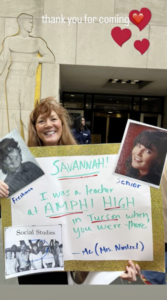 thank you for coming ❤️
SAVANNAH!
I was a teacher
at AMPHI HIGH
in Tucson when
you were there.
Freshman
Senior
Social Studies